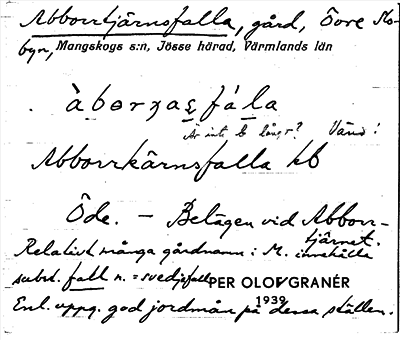 Abborrtjärnsfalla, gård, Övre Mo-
byn, Mangskogs s:n, Jösse härad, Värmlands län
Är inte b långt? Vänd!
Abborrkärnsfalla kb
Öde. — Belägen vid Abborr-
tjärnet.
Relativt många gårdnamn i M. innehålla
subst. fall n. = svedjefall
PER OLOV GRANÉR
1939
Enl. uppg. god jordmån på dessa ställen.